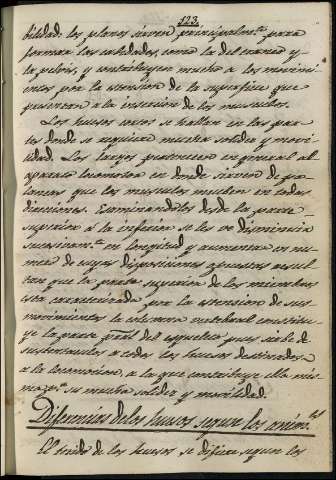 123.
bilidad: los planos sirven principalmte para
formar las cabidades, como la del craneo y
la pelvis, y contribuyen mucho a los movimi-
entos por la estension de la superficie que
presentan a la insercion de los musculos.
Los huesos cortos se hallan en las par-
tes donde se requiere mucha solidez y movi-
lidad. Los largos pertenecen en general al
aparato locomotor en donde sirven de pa-
lancas que los musculos mueben en todas
direcciones. Examinandolos desde la parte
superior a la inferior se les ve disminuir
sucesivamte en longitud y aumentar en nu-
mero de cuyas disposiciones opuestas resul-
tan que la parte superior de los miembros
esta caracterizada por la estension de sus
movimientos la columna vertebral constitu-
ye la parte pral del esqueleto pues sirbe de
sustentaculo a todos los huesos destinados
a la locomocion, a la que contribuye ella mis-
ma pr su mucha solidez y movilidad.
Diferencias de los huesos segun los anims
El tejido de los huesos se difiere segun los